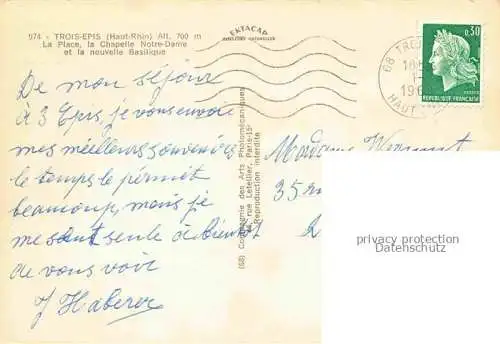 974 - TROIS-EPIS (Haut-Rhin) Alt. 700 m
La Place, la Chapelle Notre-Dame
et la nouvelle Basilique
EKTACAP
De mon séjour
à 3 Epis, je vous envoie
mes meilleurs souvenirs
le temps le permet
beaucoup, mais je
me sent seule à bientôt
de vous voir
J Haberer
(68) Compagnie des Arts Photomécaniques
rue Letellier, Paris-15e
Reproduction interdite
0,30
REPUBLIQUE FRANÇAISE
68 TRO
18
1
196
HAUT
Madame
35
privacy protection